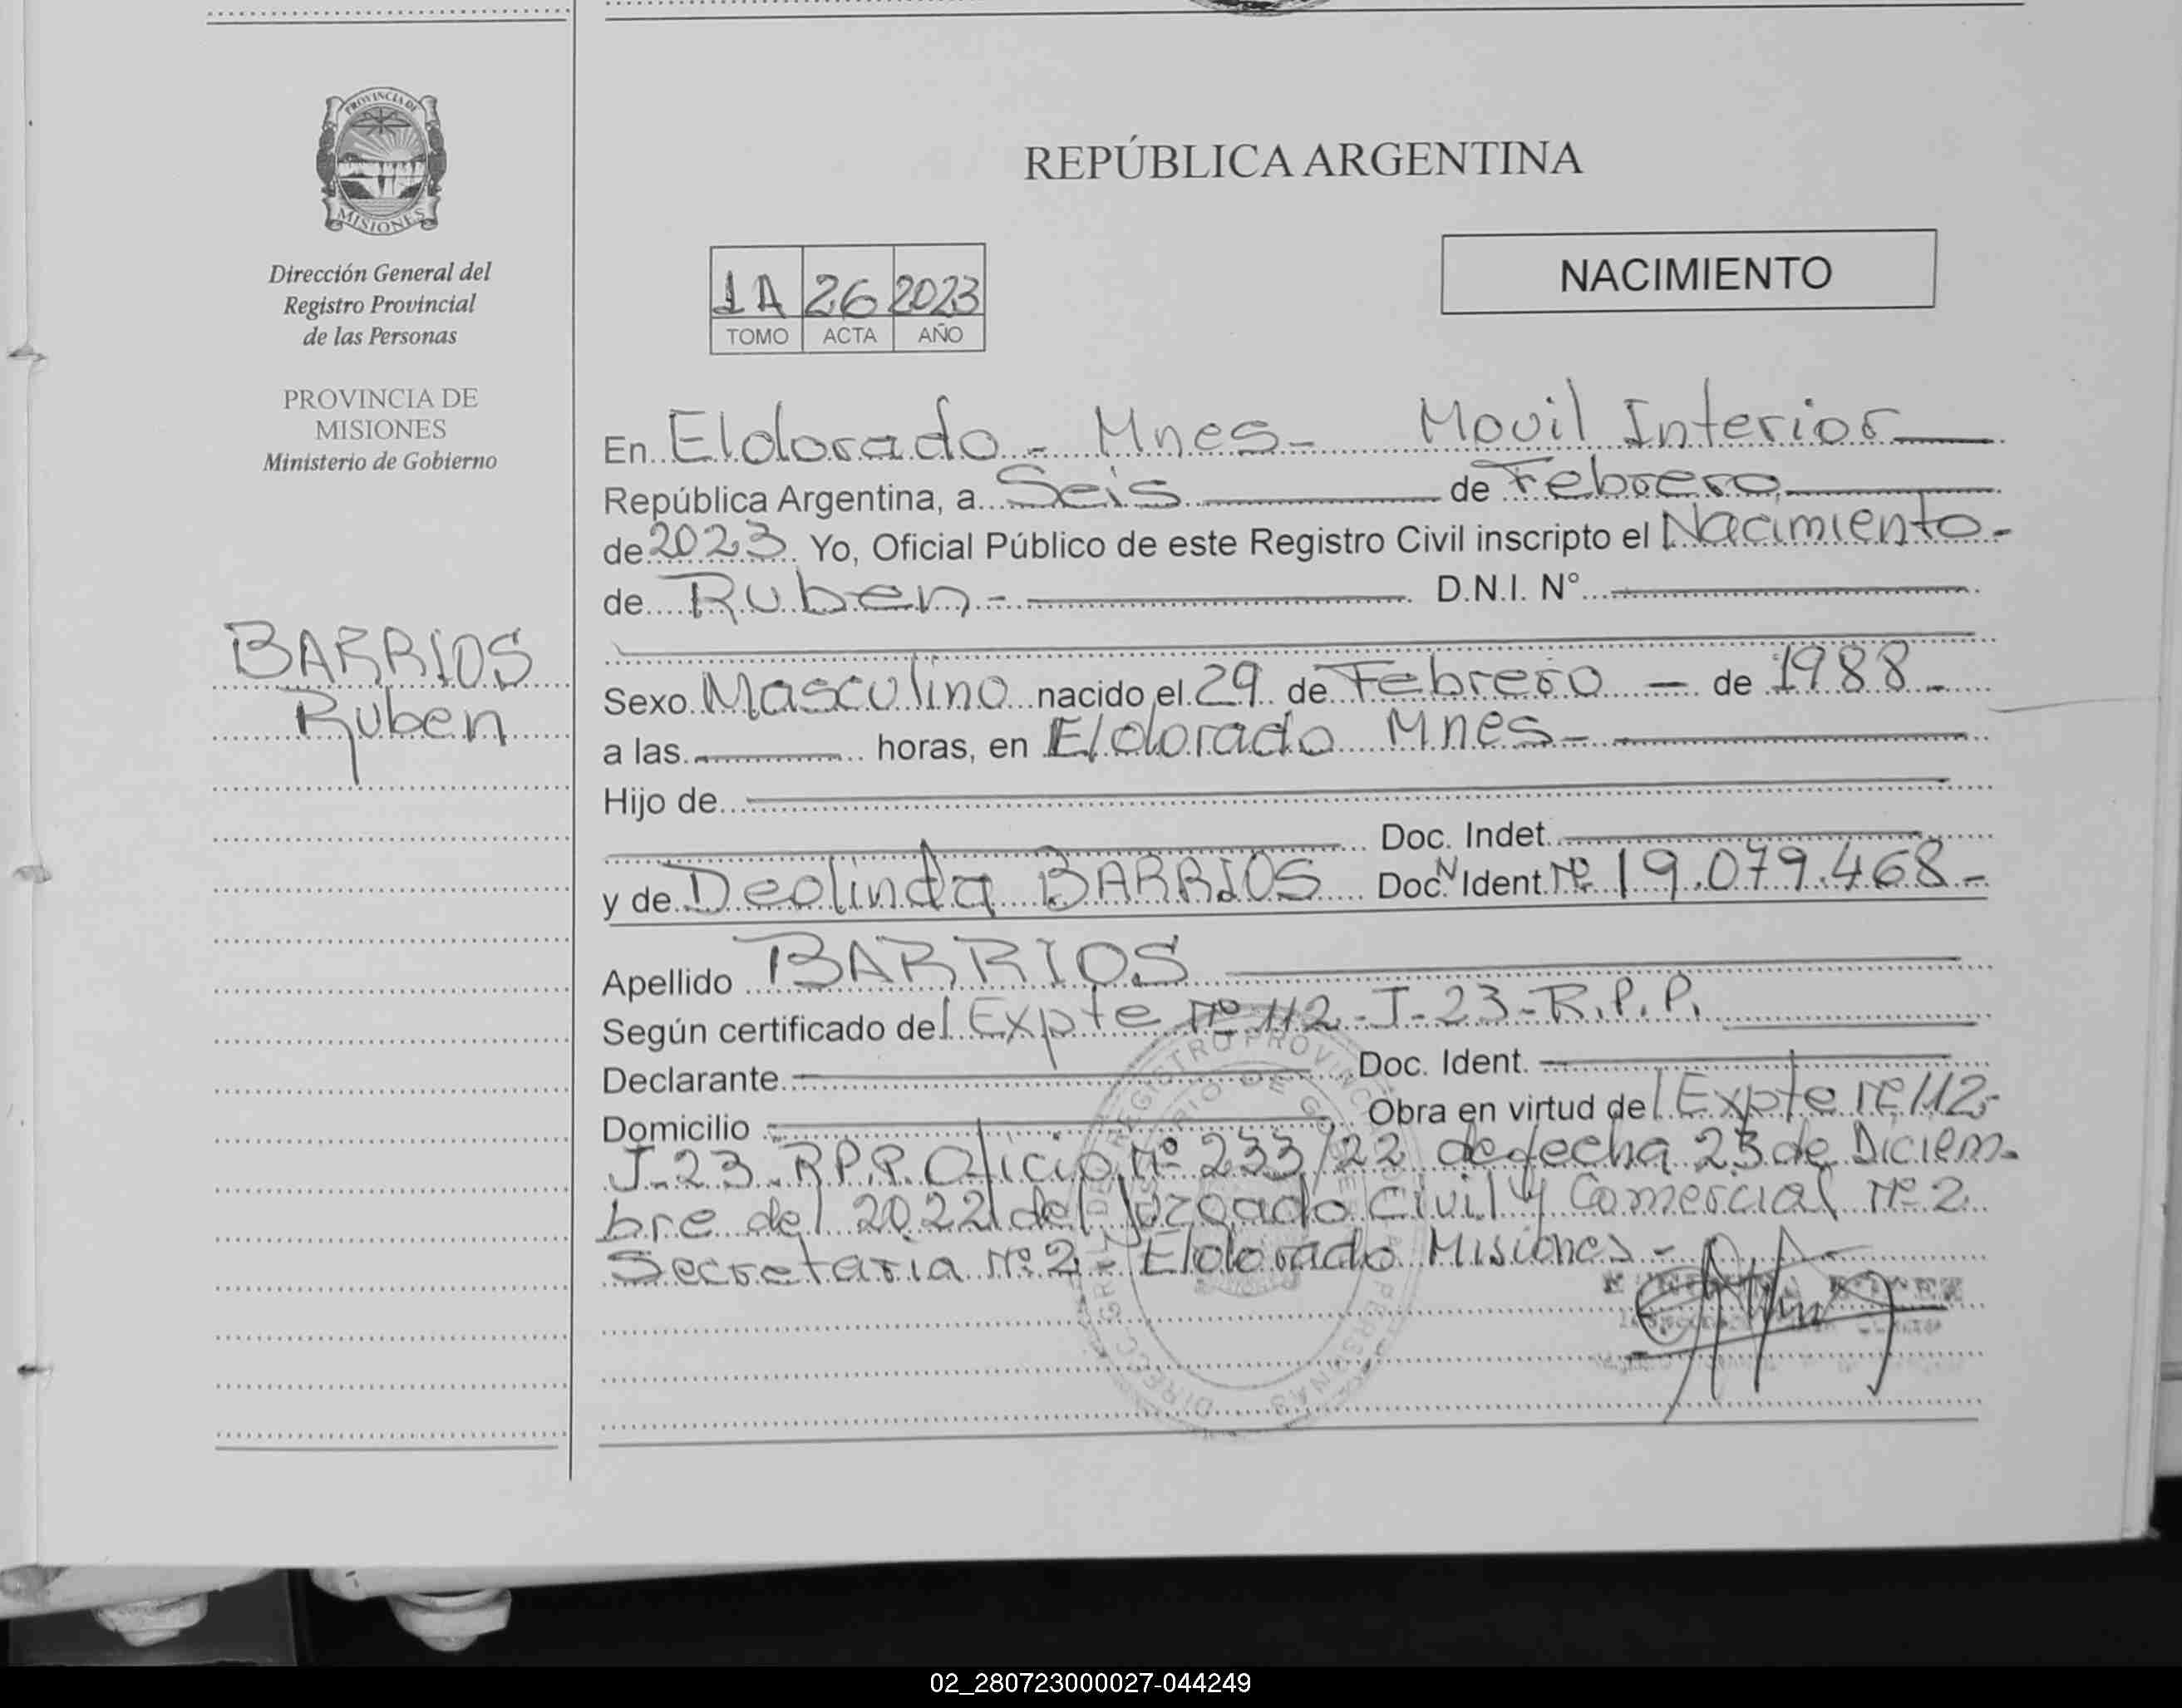 PROVINCIA DE
MISIONES
Dirección General del
Registro Provincial
de las Personas
PROVINCIA DE
MISIONES
Ministerio de Gobierno
BARRIOS
Ruben
REPÚBLICA ARGENTINA
1A 26 2023
TOMO ACTA AÑO
NACIMIENTO
En Eldorado - Mnes- Movil Interior
República Argentina, a Seis de Febrero
de 2023 Yo, Oficial Público de este Registro Civil inscripto el Nacimiento-
de Ruben- D.N.I. N°
Sexo Masculino nacido el 29 de Febrero - de 1988-
a las horas, en Eldorado Mnes-
Hijo de
Doc. Indet.
y de Deolinda BARRIOS Doc. Ident. Nº 19.079.468-
Apellido BARRIOS
Según certificado del Expte Nº 112-J-23-R.P.P.
Declarante Doc. Ident.
Domicilio Obra en virtud del Expte Nº 112-
J-23-RPP. Oficio Nº 233/22 de fecha 23 de Diciem-
bre del 2022 del Juzgado Civil y Comercial Nº 2
Secretaria Nº 2 - Eldorado Misiones-
02_280723000027-044249